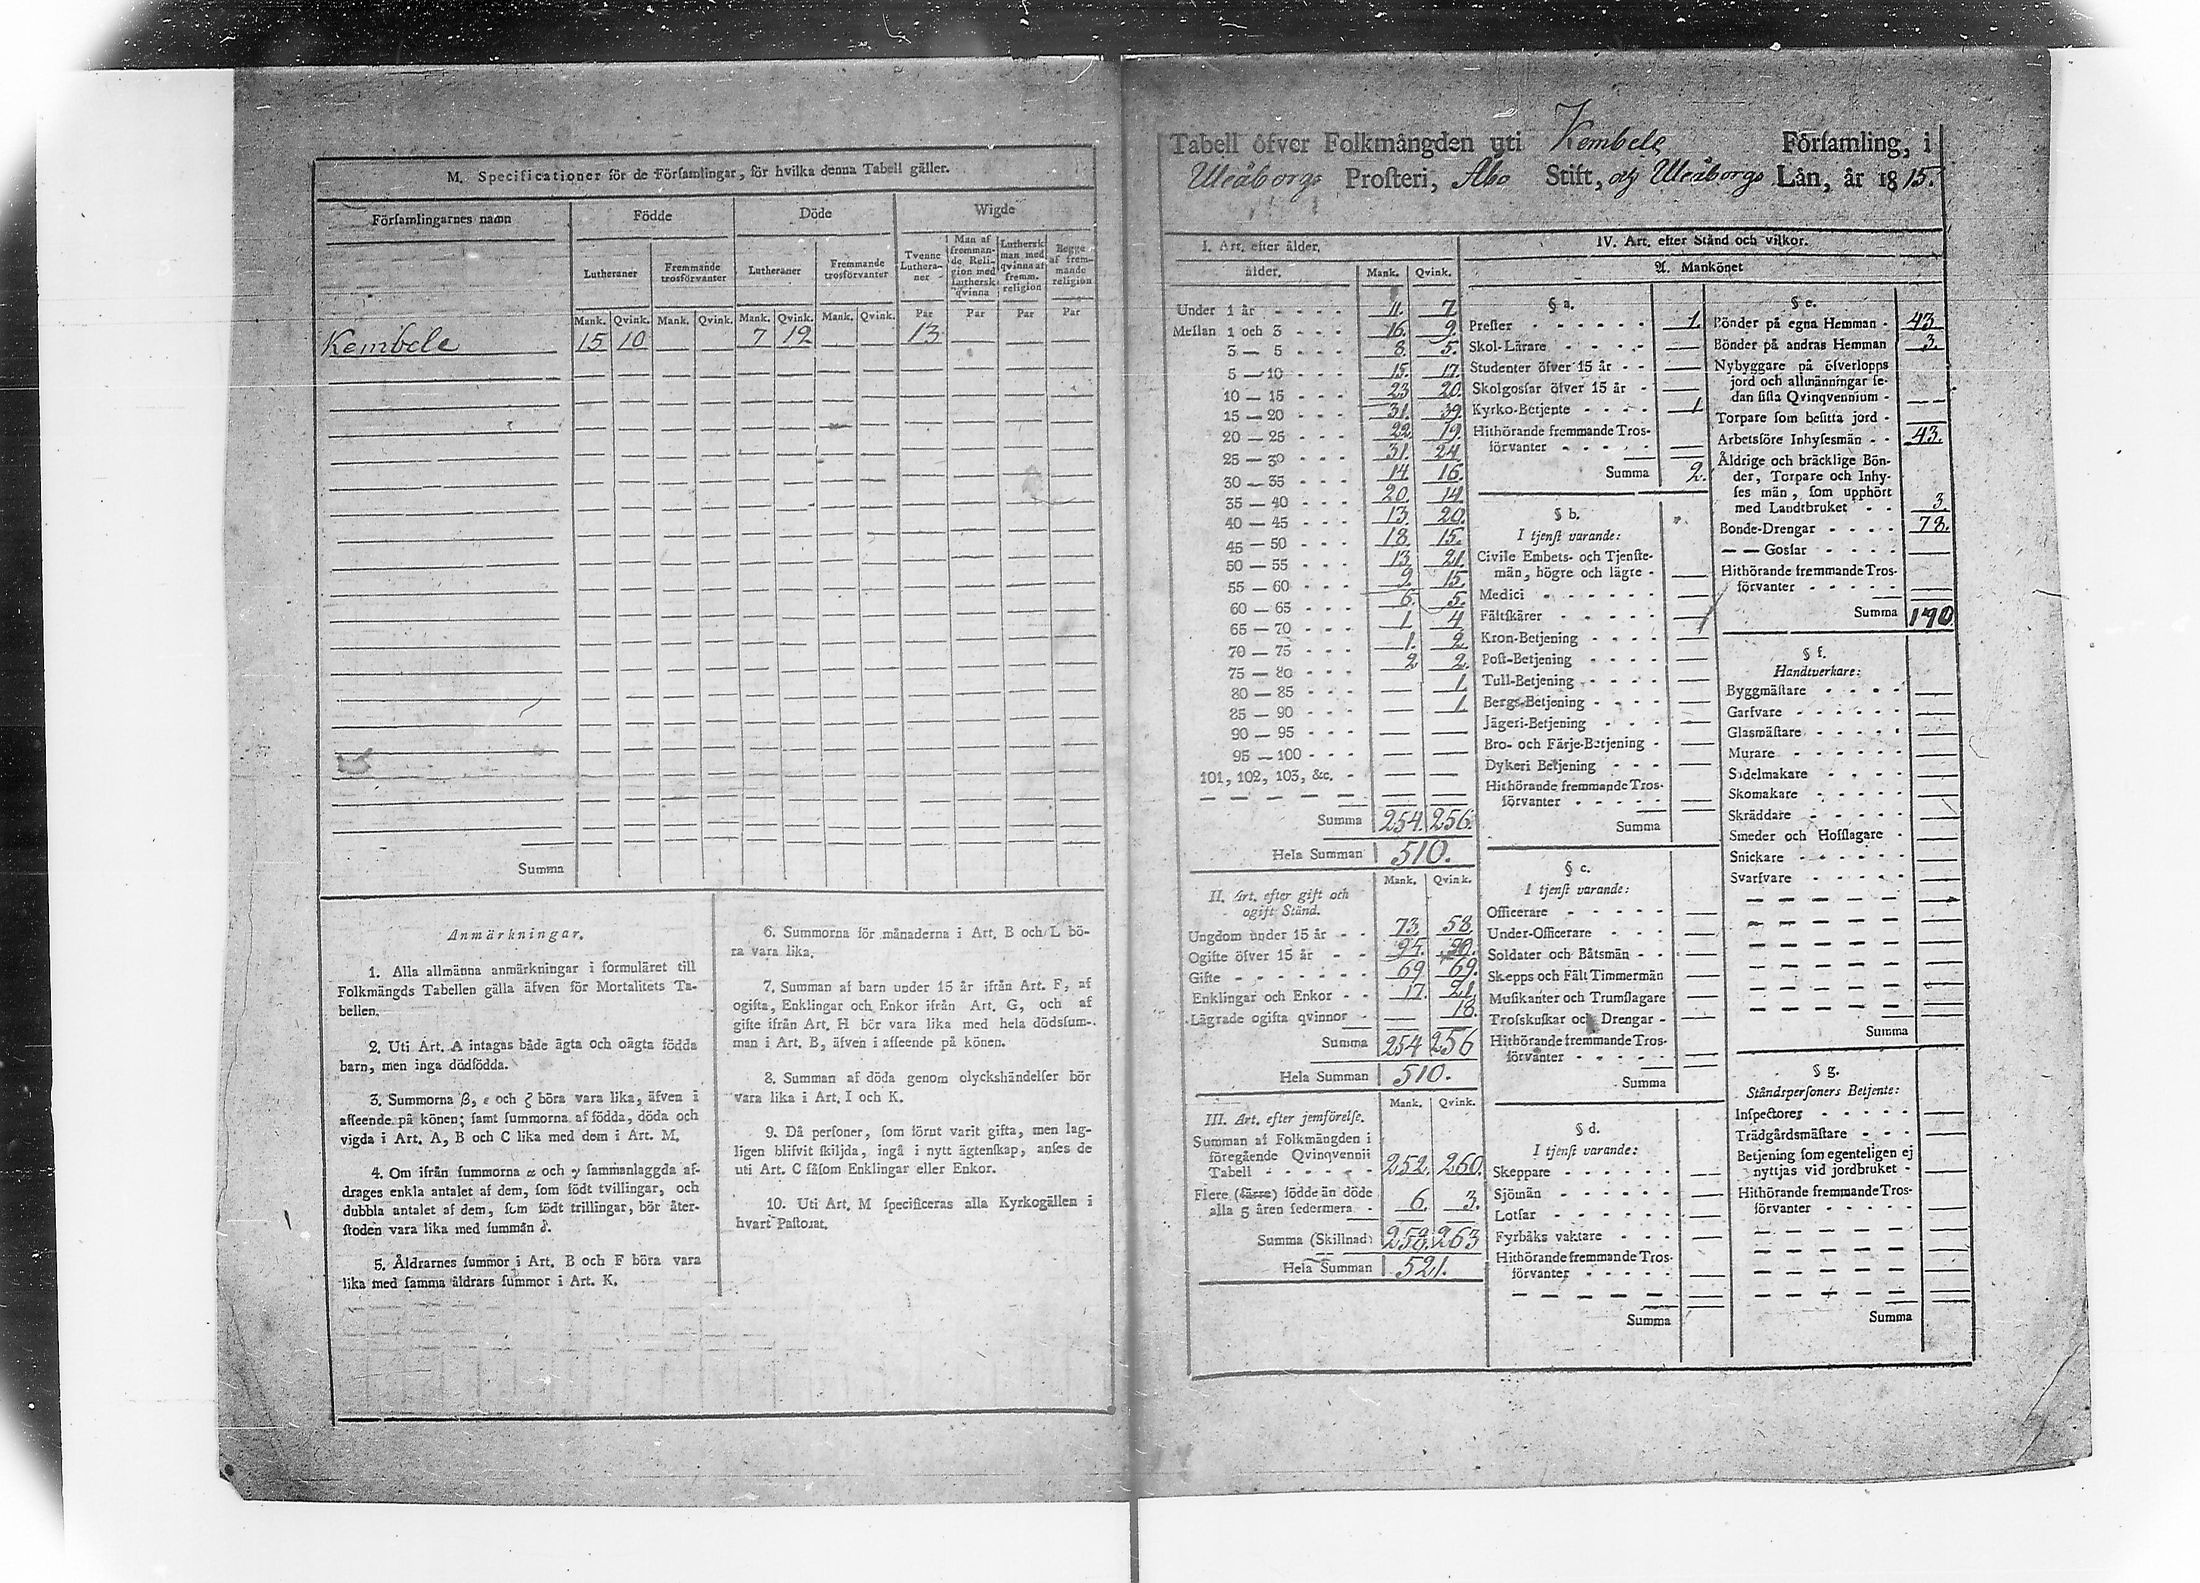 M. Specificationer för de Förſamlingar, för hvilka denna Tabell gäller.
Förſamlingarnes namn
Födde
Döde
Wigde
Lutheraner
Fremmande trosförvanter
Lutheraner
Fremmande trosförvanter
Tvenne Lutheraner
1 Man af fremmande Religion med Lutherſk qvinna
Lutherſk man med qvinna af fremm. religion
Begge af fremmande religion
Mank. Qvink. Mank. Qvink. Mank. Qvink. Mank. Qvink. Par Par Par Par
Kembele 15 10 — — 7 12 — — 13 — — —
Summa
Anmärkningar.
1. Alla allmänna anmärkningar i formuläret till
Folkmängds Tabellen gälla äfven för Mortalitets Ta-
bellen.
2. Uti Art. A intagas både ägta och oägta födda
barn, men inga dödfödda.
3. Summorna β, ε och ζ böra vara lika, äfven i
afſeende på könen; ſamt ſummorna af födda, döda och
vigda i Art. A, B och C lika med dem i Art. M.
4. Om ifrån ſummorna α och γ ſammanlaggda af-
drages enkla antalet af dem, ſom födt tvillingar, och
dubbla antalet af dem, ſom födt trillingar, bör åter-
ſtoden vara lika med ſumman δ.
5. Åldrarnes ſummor i Art. B och F böra vara
lika med ſamma åldrars ſummor i Art. K.
6. Summorna för månaderna i Art. B och L bö-
ra vara lika.
7. Summan af barn under 15 år ifrån Art. F, af
ogifta, Enklingar och Enkor ifrån Art. G, och af
gifte ifrån Art. H bör vara lika med hela dödsſum-
man i Art. B, äfven i afſeende på könen.
8. Summan af döda genom olyckshändelſer bör
vara lika i Art. I och K.
9. Då perſoner, ſom förut varit gifta, men lag-
ligen blifvit ſkiljda, ingå i nytt ägtenſkap, anſes de
uti Art. C ſåſom Enklingar eller Enkor.
10. Uti Art. M ſpecificeras alla Kyrkogällen i
hvart Paſtorat.
Tabell öfver Folkmängden uti Kembele Förſamling, i
Uleåborgs Proſteri, Åbo Stift, och Uleåborgs Län, år 1815.
I. Art. efter ålder.
ålder. Mank. Qvink.
Under 1 år - - - - 11. 7.
Mellan 1 och 3 - - - 16. 9.
3 — 5 - - - 8. 5.
5 — 10 - - - 15. 17.
10 — 15 - - - 23 20.
15 — 20 - - - 31. 39.
20 — 25 - - - 22. 19.
25 — 30 - - - 31. 24.
30 — 35 - - - 14. 16.
35 — 40 - - - 20. 14.
40 — 45 - - - 13. 20.
45 — 50 - - - 18. 15.
50 — 55 - - - 13. 21.
55 — 60 - - - 9. 15.
60 — 65 - - - 6. 5.
65 — 70 - - - 1. 4
70 — 75 - - - 1. 2.
75 — 80 - - - 2 2.
80 — 85 - - - — 1.
85 — 90 - - - — 1.
90 — 95 - - - — —
95 — 100 - - - — —
101, 102, 103, &c. - — —
Summa 254. 256.
Hela Summan 510.
II. Art. efter gift och
ogift Stånd.
Mank. Qvink.
Ungdom under 15 år - - 73. 58.
Ogifte öfver 15 år - - 95. 90.
Gifte - - - - - - - 69 69.
Enklingar och Enkor - - 17. 21.
Lägrade ogifta qvinnor - — 18.
Summa 254 256
Hela Summan 510.
III. Art. efter jemförelſe.
Mank. Qvink.
Summan af Folkmängden i
föregående Qvinqvennii
Tabell - - - - - 252. 260.
Flere (färre) födde än döde
alla 5 åren ſedermera - 6. 3.
Summa (Skillnad) 258. 263
Hela Summan 521.
IV. Art. efter Stånd och vilkor.
A. Mankönet
§ a.
Preſter - - - - - - 1.
Skol-Lärare - - - - - —
Studenter öfver 15 år - - —
Skolgoſſar öfver 15 år - —
Kyrko-Betjente - - - - 1
Hithörande fremmande Tros-
förvanter - - - - - —
Summa 2.
§ b.
I tjenſt varande:
Civile Embets- och Tjenſte-
män, högre och lägre - —
Medici - - - - - - —
Fältſkärer - - - - - —
Kron-Betjening - - - - —
Poſt-Betjening - - - - —
Tull-Betjening - - - - —
Bergs-Betjening - - - - —
Jägeri-Betjening - - - —
Bro- och Färje-Betjening - —
Dykeri Betjening - - - —
Hithörande fremmande Tros-
förvanter - - - - - —
Summa
§ c.
I tjenſt varande:
Officerare - - - - - —
Under-Officerare - - - - —
Soldater och Båtsmän - - —
Skepps och Fält Timmermän —
Muſikanter och Trumſlagare —
Trofskuſkar och Drengar - —
Hithörande fremmande Tros-
förvanter - - - - - —
Summa
§ d.
I tjenſt varande:
Skeppare - - - - - - —
Sjömän - - - - - - —
Lotſar - - - - - - —
Fyrbåks vaktare - - - —
Hithörande fremmande Tros-
förvanter - - - - - —
Summa
§ e.
Bönder på egna Hemman - 43
Bönder på andras Hemman 3.
Nybyggare på öfverlopps
jord och allmänningar ſe-
dan ſiſta Qvinqvennium - —
Torpare ſom beſitta jord - —
Arbetsföre Inhyſesmän - - 43.
Åldrige och bräcklige Bön-
der, Torpare och Inhy-
ſes män, ſom upphört
med Landtbruket - - 3.
Bonde-Drengar - - - - 78.
— — Goſſar - - - - —
Hithörande fremmande Tros-
förvanter - - - - —
Summa 170
§ f.
Handtverkare:
Byggmäſtare - - - - —
Garfvare - - - - - - —
Glasmäſtare - - - - - —
Murare - - - - - - —
Sadelmakare - - - - —
Skomakare - - - - - —
Skräddare - - - - - —
Smeder och Hofſlagare - —
Snickare - - - - - - —
Svarfvare - - - - - —
Summa
§ g.
Ståndsperſoners Betjente:
Inſpectorer - - - - - —
Trädgårdsmäſtare - - - —
Betjening ſom egenteligen ej
nyttjas vid jordbruket - —
Hithörande fremmande Tros-
förvanter - - - - - —
Summa